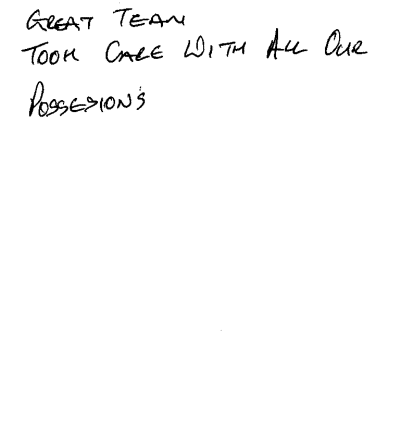 GREAT TEAM
TOOK CARE WITH ALL OUR
POSSESIONS